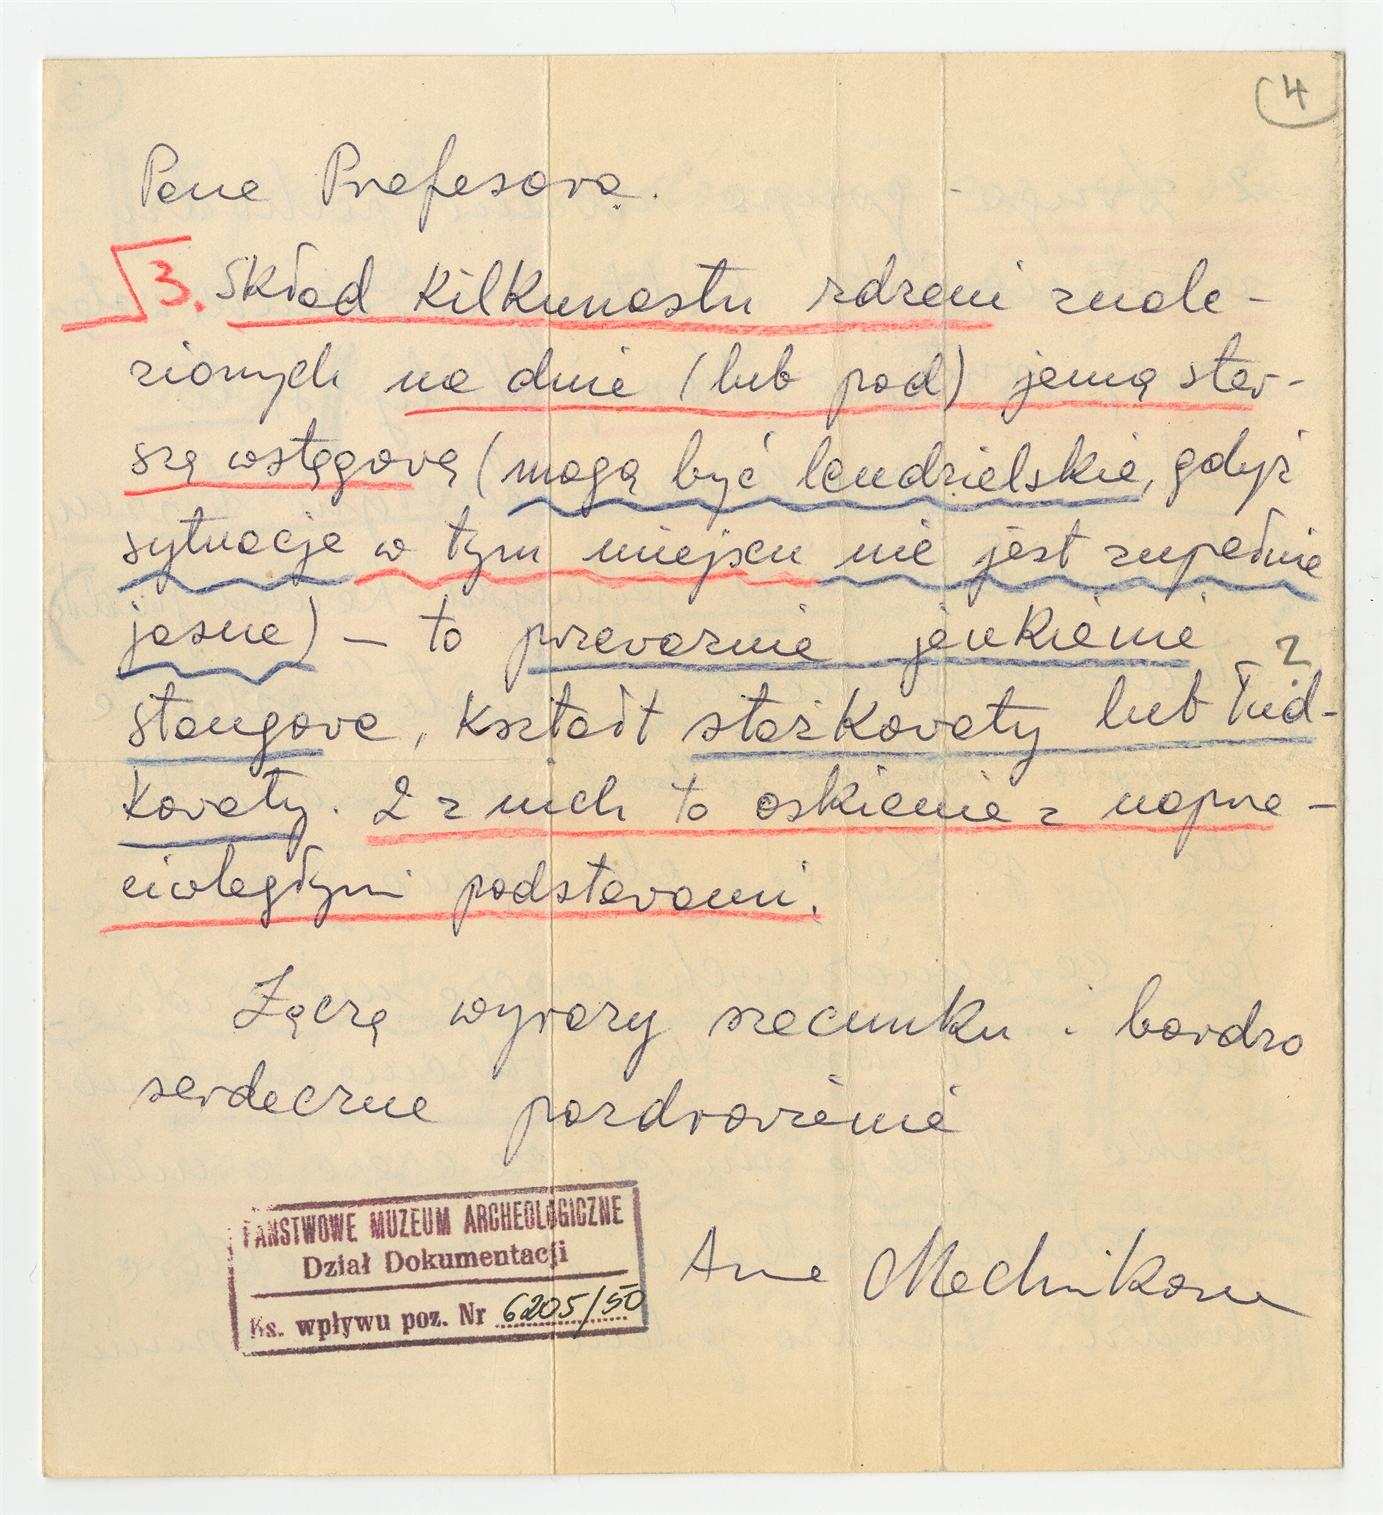 4
Pana Profesora.
3. Skład kilkunastu rdzeni znale-
zionych na dnie (lub pod) jamą star-
szą wstęgową (mogą być lendzielskie, gdyż
sytuacja w tym miejscu nie jest zupełnie
jasna) – to przeważnie jenkienie
?
stangowe, kształt stożkowaty lub łód-
kowaty. 2 z nich to oskienie z naprze-
ciwległymi podstawami.
Łączę wyrazy szacunku i bardzo
serdeczne pozdrowienia
PAŃSTWOWE MUZEUM ARCHEOLOGICZNE
Dział Dokumentacji
Ks. wpływu poz. Nr 6205/50
Anna